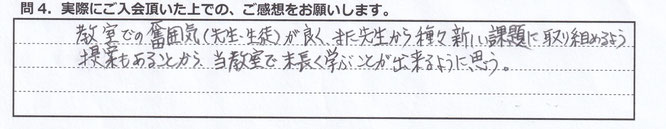 問4．実際にご入会頂いた上での、ご感想をお願いします。
教室での雰囲気(先生・生徒)が良く、また先生から種々新しい課題に取り組めるよう
提案もあることから、当教室で末長く学ぶことが出来るように思う。